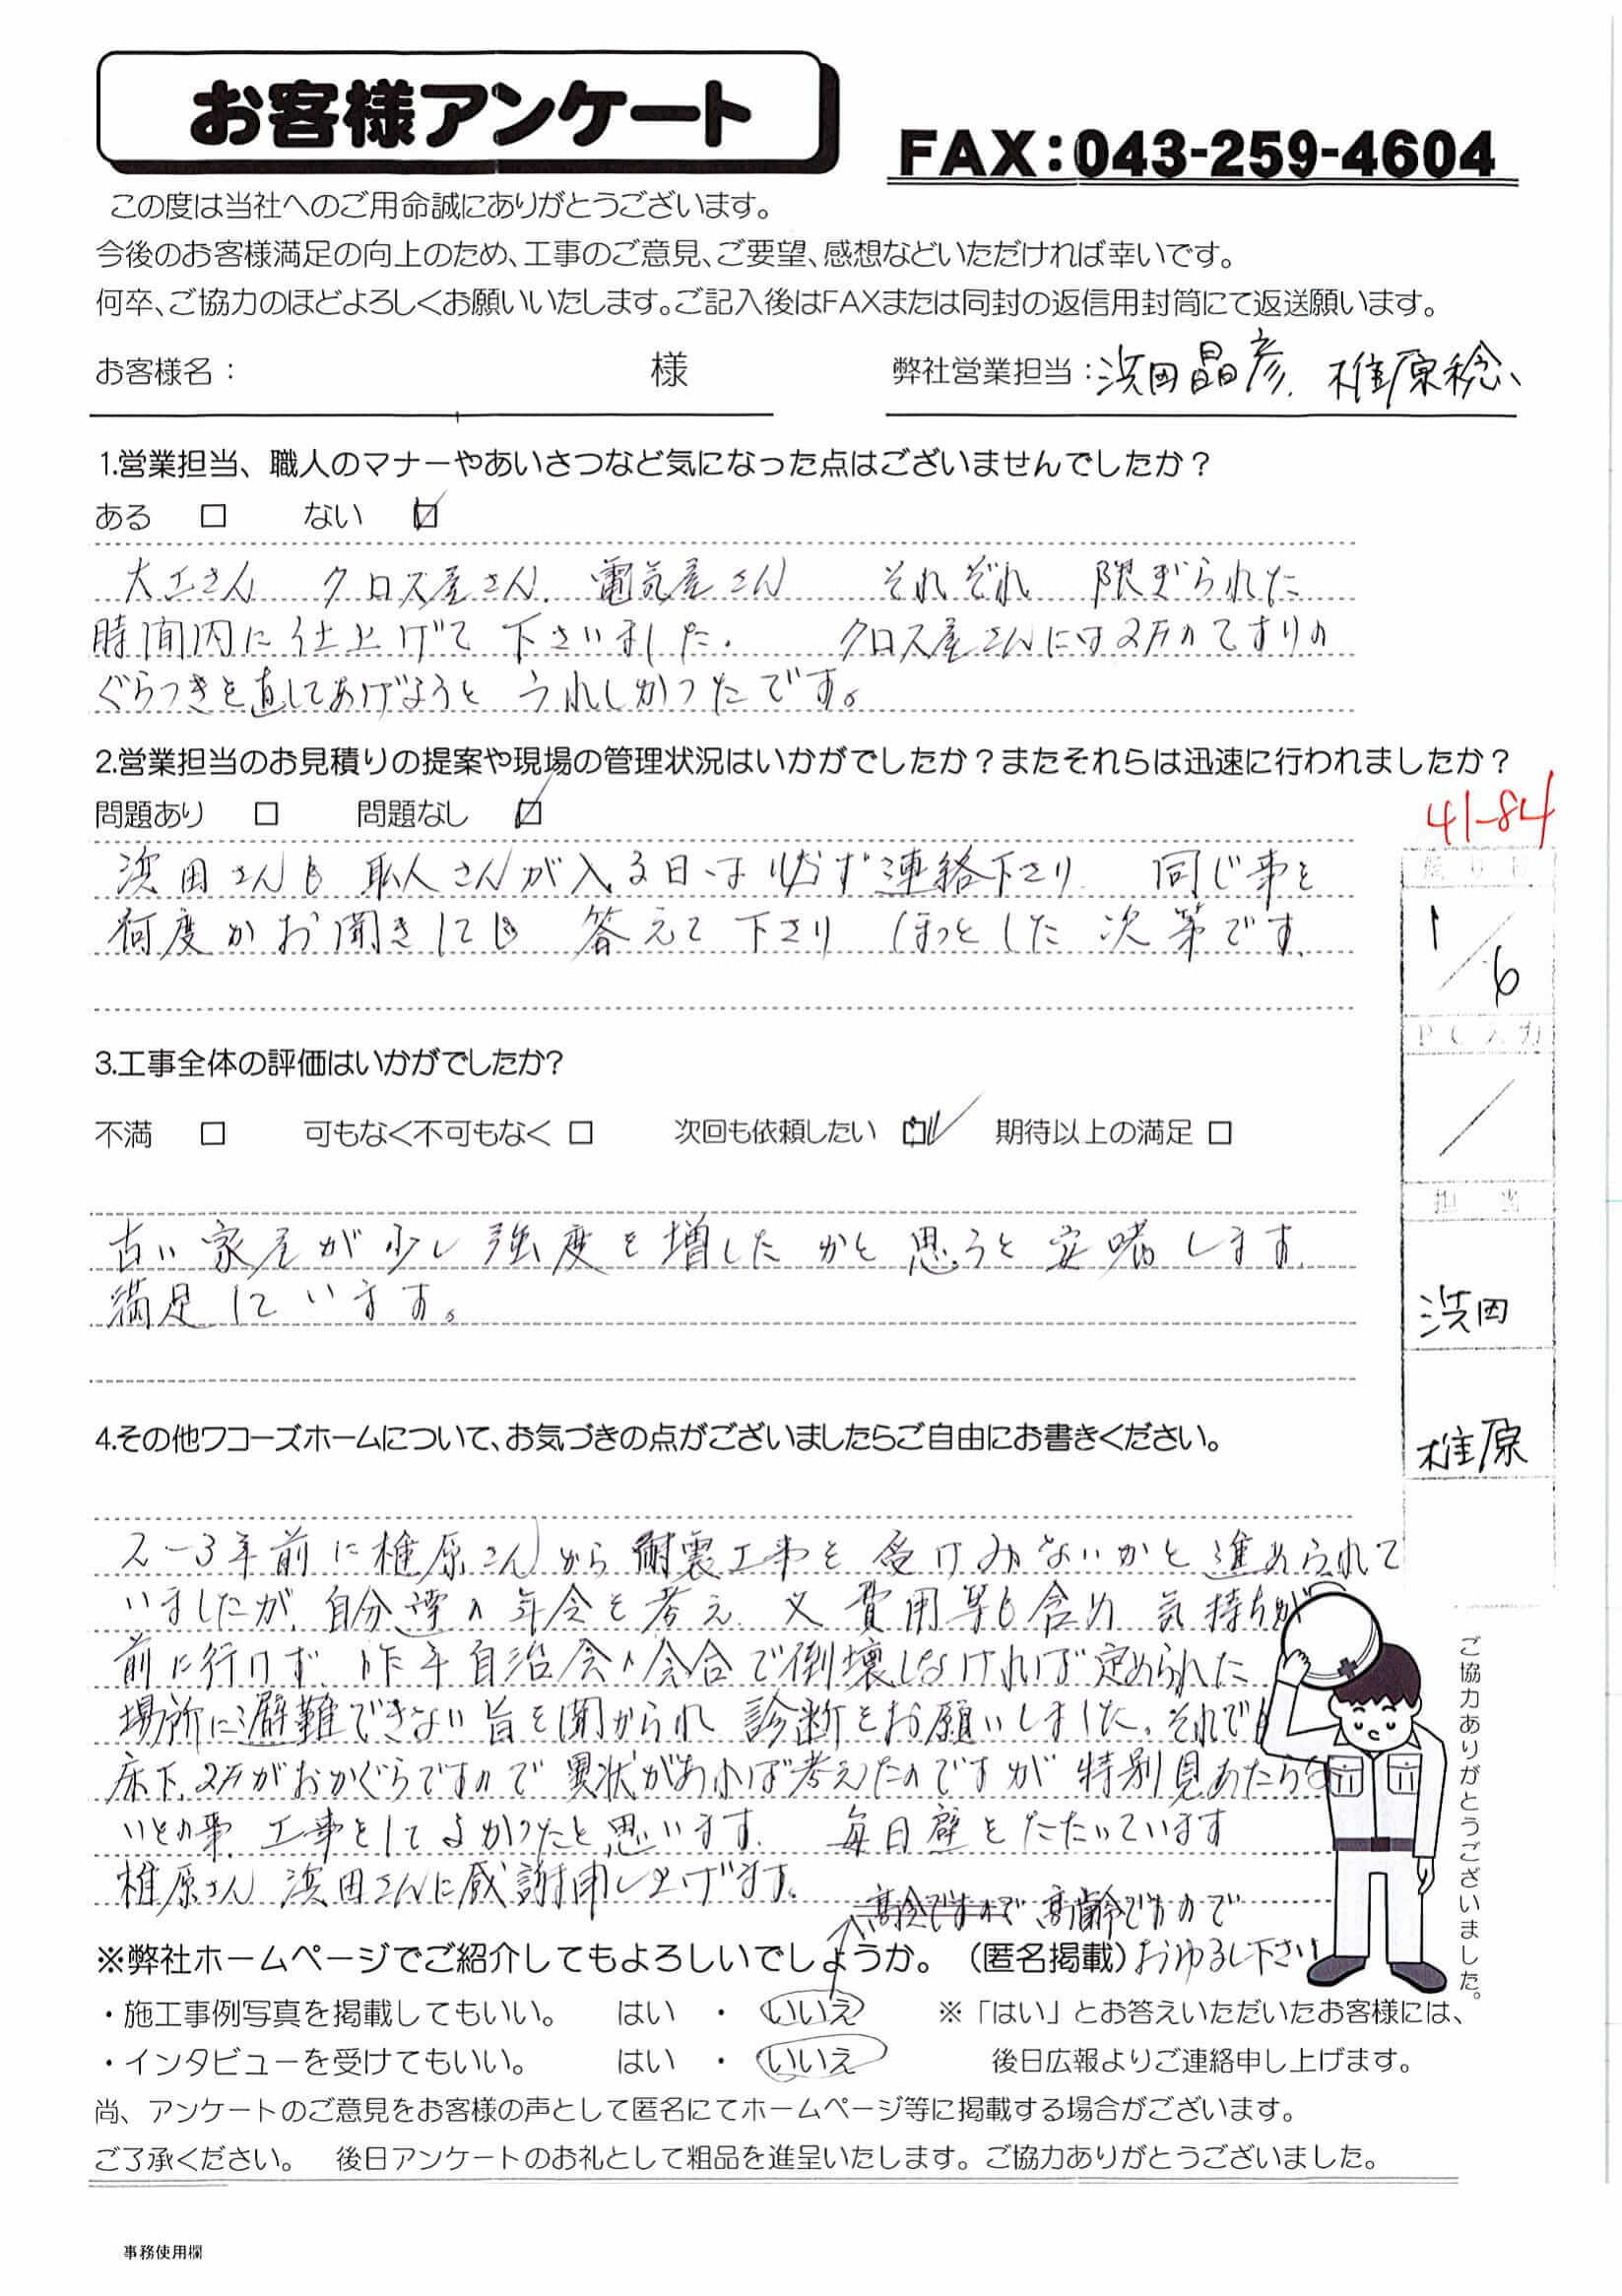 お客様アンケート
FAX:043-259-4604
この度は当社へのご用命誠にありがとうございます。
今後のお客様満足の向上のため、工事のご意見、ご要望、感想などいただければ幸いです。
何卒、ご協力のほどよろしくお願いいたします。ご記入後はFAXまたは同封の返信用封筒にて返送願います。
お客様名： 様 弊社営業担当：浜田晶彦、椎原稔、
1.営業担当、職人のマナーやあいさつなど気になった点はございませんでしたか？
ある □ ない ☑
大工さん クロス屋さん、電気屋さん それぞれ 限ぎられた
時間内に仕上げて下さいました. クロス屋さんには2万のてすりの
ぐらつきを直してあげようと うれしかったです。
2.営業担当のお見積りの提案や現場の管理状況はいかがでしたか？またそれらは迅速に行われましたか？
問題あり □ 問題なし ☑
41-84
浜田さんも 職人さんが入る日は必ず連絡下さり 同じ事を
何度かお聞きしても 答えて下さり ほっとした次第です、
戻り日
1/6
PC入力
/
3.工事全体の評価はいかがでしたか?
不満 □ 可もなく不可もなく □ 次回も依頼したい ☑ 期待以上の満足 □
担当
古い家屋が少し強度を増したかと思うと安堵します、
満足しています。
浜田
4.その他ワコーズホームについて、お気づきの点がございましたらご自由にお書きください。
椎原
2-3年前に椎原さんから耐震工事を受けみないかと進められて
いましたが、自分達の年令を考え、又費用等も含め 気持ちが
前に行けず、昨年自治会の会合で倒壊しなければ定められた
場所に避難できない旨を聞かられ 診断をお願いしました。それでも
床下、2万がおかぐらですので 異状があれば考えたのですが 特別見あたらな
いとの事、工事をしてよかったと思います、 毎日壁をたたいています
椎原さん 浜田さんに感謝申し上げます。
高令ですので 高齢ですので
※弊社ホームページでご紹介してもよろしいでしょうか。（匿名掲載）おゆるし下さい
・施工事例写真を掲載してもいい。 はい ・ いいえ ※「はい」とお答えいただいたお客様には、
・インタビューを受けてもいい。 はい ・ いいえ 後日広報よりご連絡申し上げます。
ご協力ありがとうございました。
尚、アンケートのご意見をお客様の声として匿名にてホームページ等に掲載する場合がございます。
ご了承ください。 後日アンケートのお礼として粗品を進呈いたします。ご協力ありがとうございました。
事務使用欄